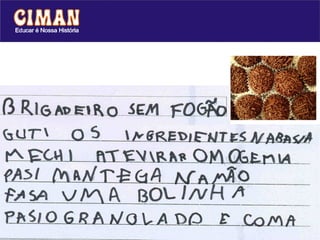 CIMAN
Educar é Nossa História
BRIGADEIRO SEM FOGÃO
GUTI OS INGREDIENTES NABASIA
MECHI ATEVIRAR OMOGEMIA
PASI MANTEGA NA MÃO
FASA UMA BOLINHA
PASIO GRANOLADO E COMA